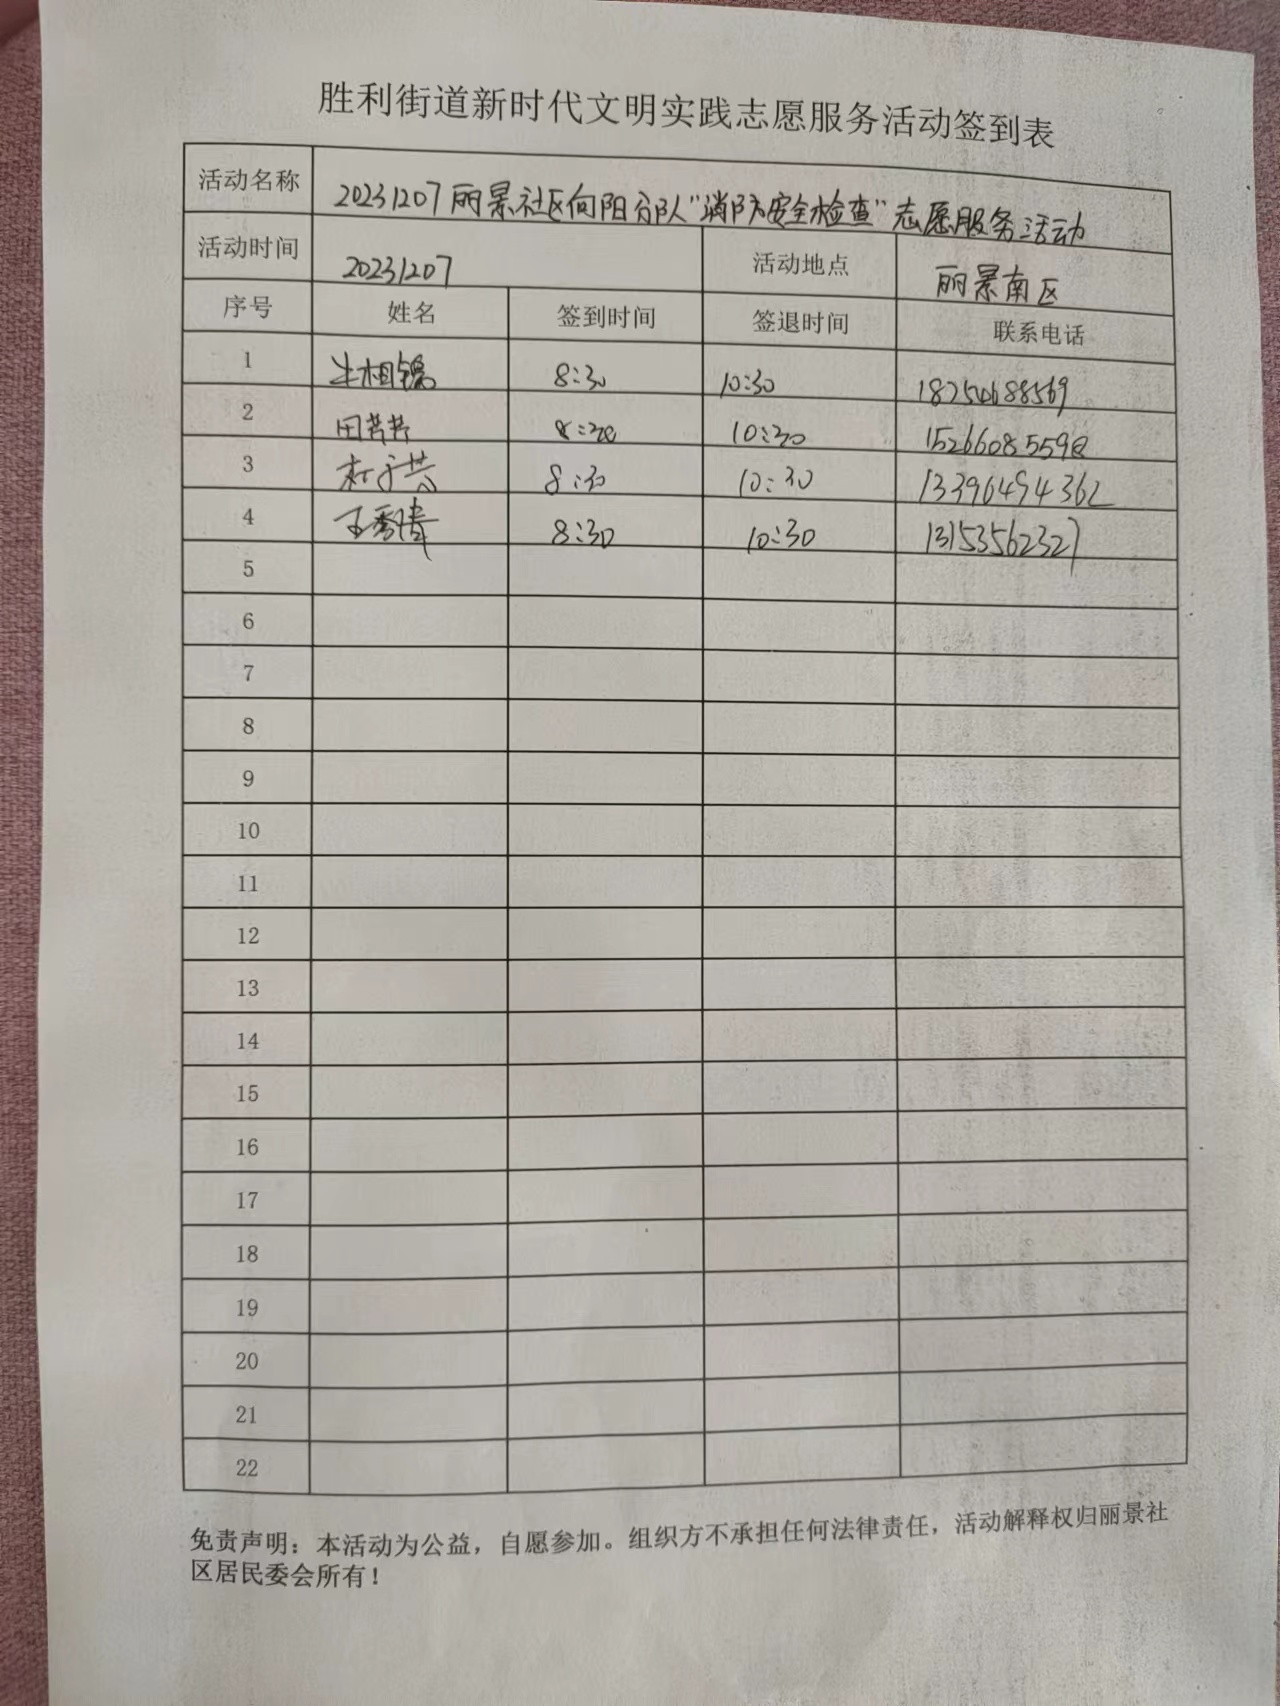 胜利街道新时代文明实践志愿服务活动签到表
活动名称 20231207丽景社区向阳分队“消防安全检查”志愿服务活动
活动时间 20231207 活动地点 丽景南区
序号 姓名 签到时间 签退时间 联系电话
1 牛相锦 8:30 10:30 18254688569
2 田芸芸 8:30 10:30 15266085598
3 8:30 10:30 13396494362
4 王秀清 8:30 10:30 13153562327
5
6
7
8
9
10
11
12
13
14
15
16
17
18
19
20
21
22
免责声明：本活动为公益，自愿参加。组织方不承担任何法律责任，活动解释权归丽景社
区居民委会所有！